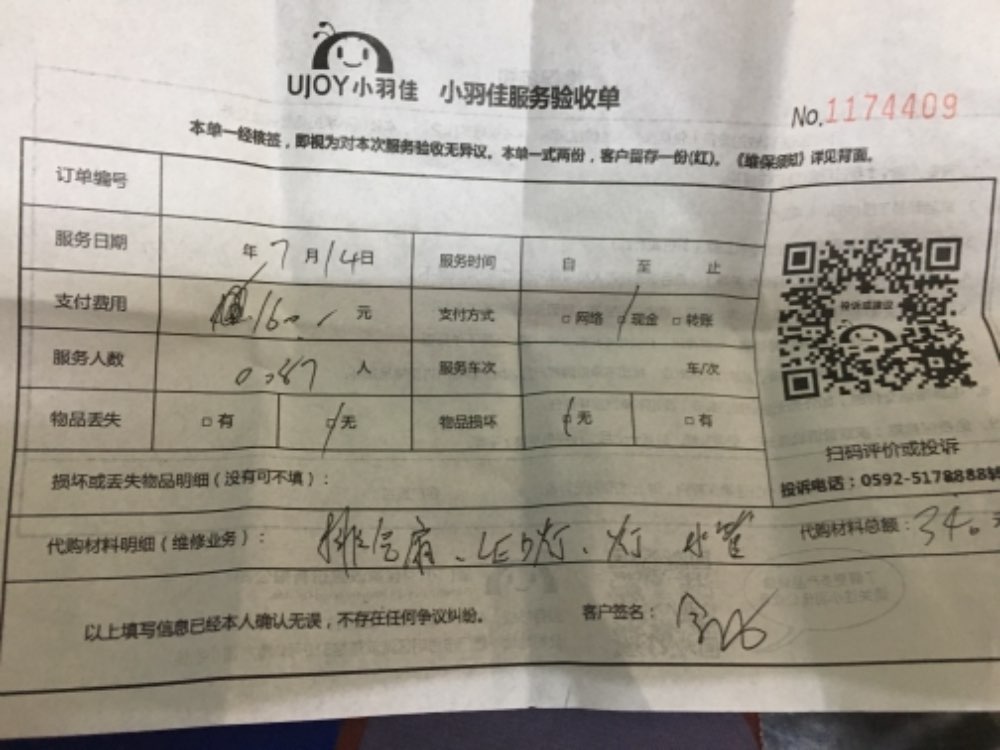 UJOY小羽佳 小羽佳服务验收单
No.1174409
本单一经核签，即视为对本次服务验收无异议。本单一式两份，客户留存一份(红)。《维保须知》详见背面。
订单编号
服务日期 年 7 月 14 日 服务时间 自 至 止
支付费用 160 元 支付方式 □ 网络 □ 现金 □ 转账
服务人数 0387 人 服务车次 车/次
物品丢失 □ 有 □ 无 物品损坏 □ 无 □ 有
投诉或建议
扫码评价或投诉
投诉电话：0592-5178888转
损坏或丢失物品明细（没有可不填）：
代购材料明细（维修业务）： 排气扇、LED灯、灯 水管 代购材料总额：340元
以上填写信息已经本人确认无误，不存在任何争议纠纷。 客户签名：